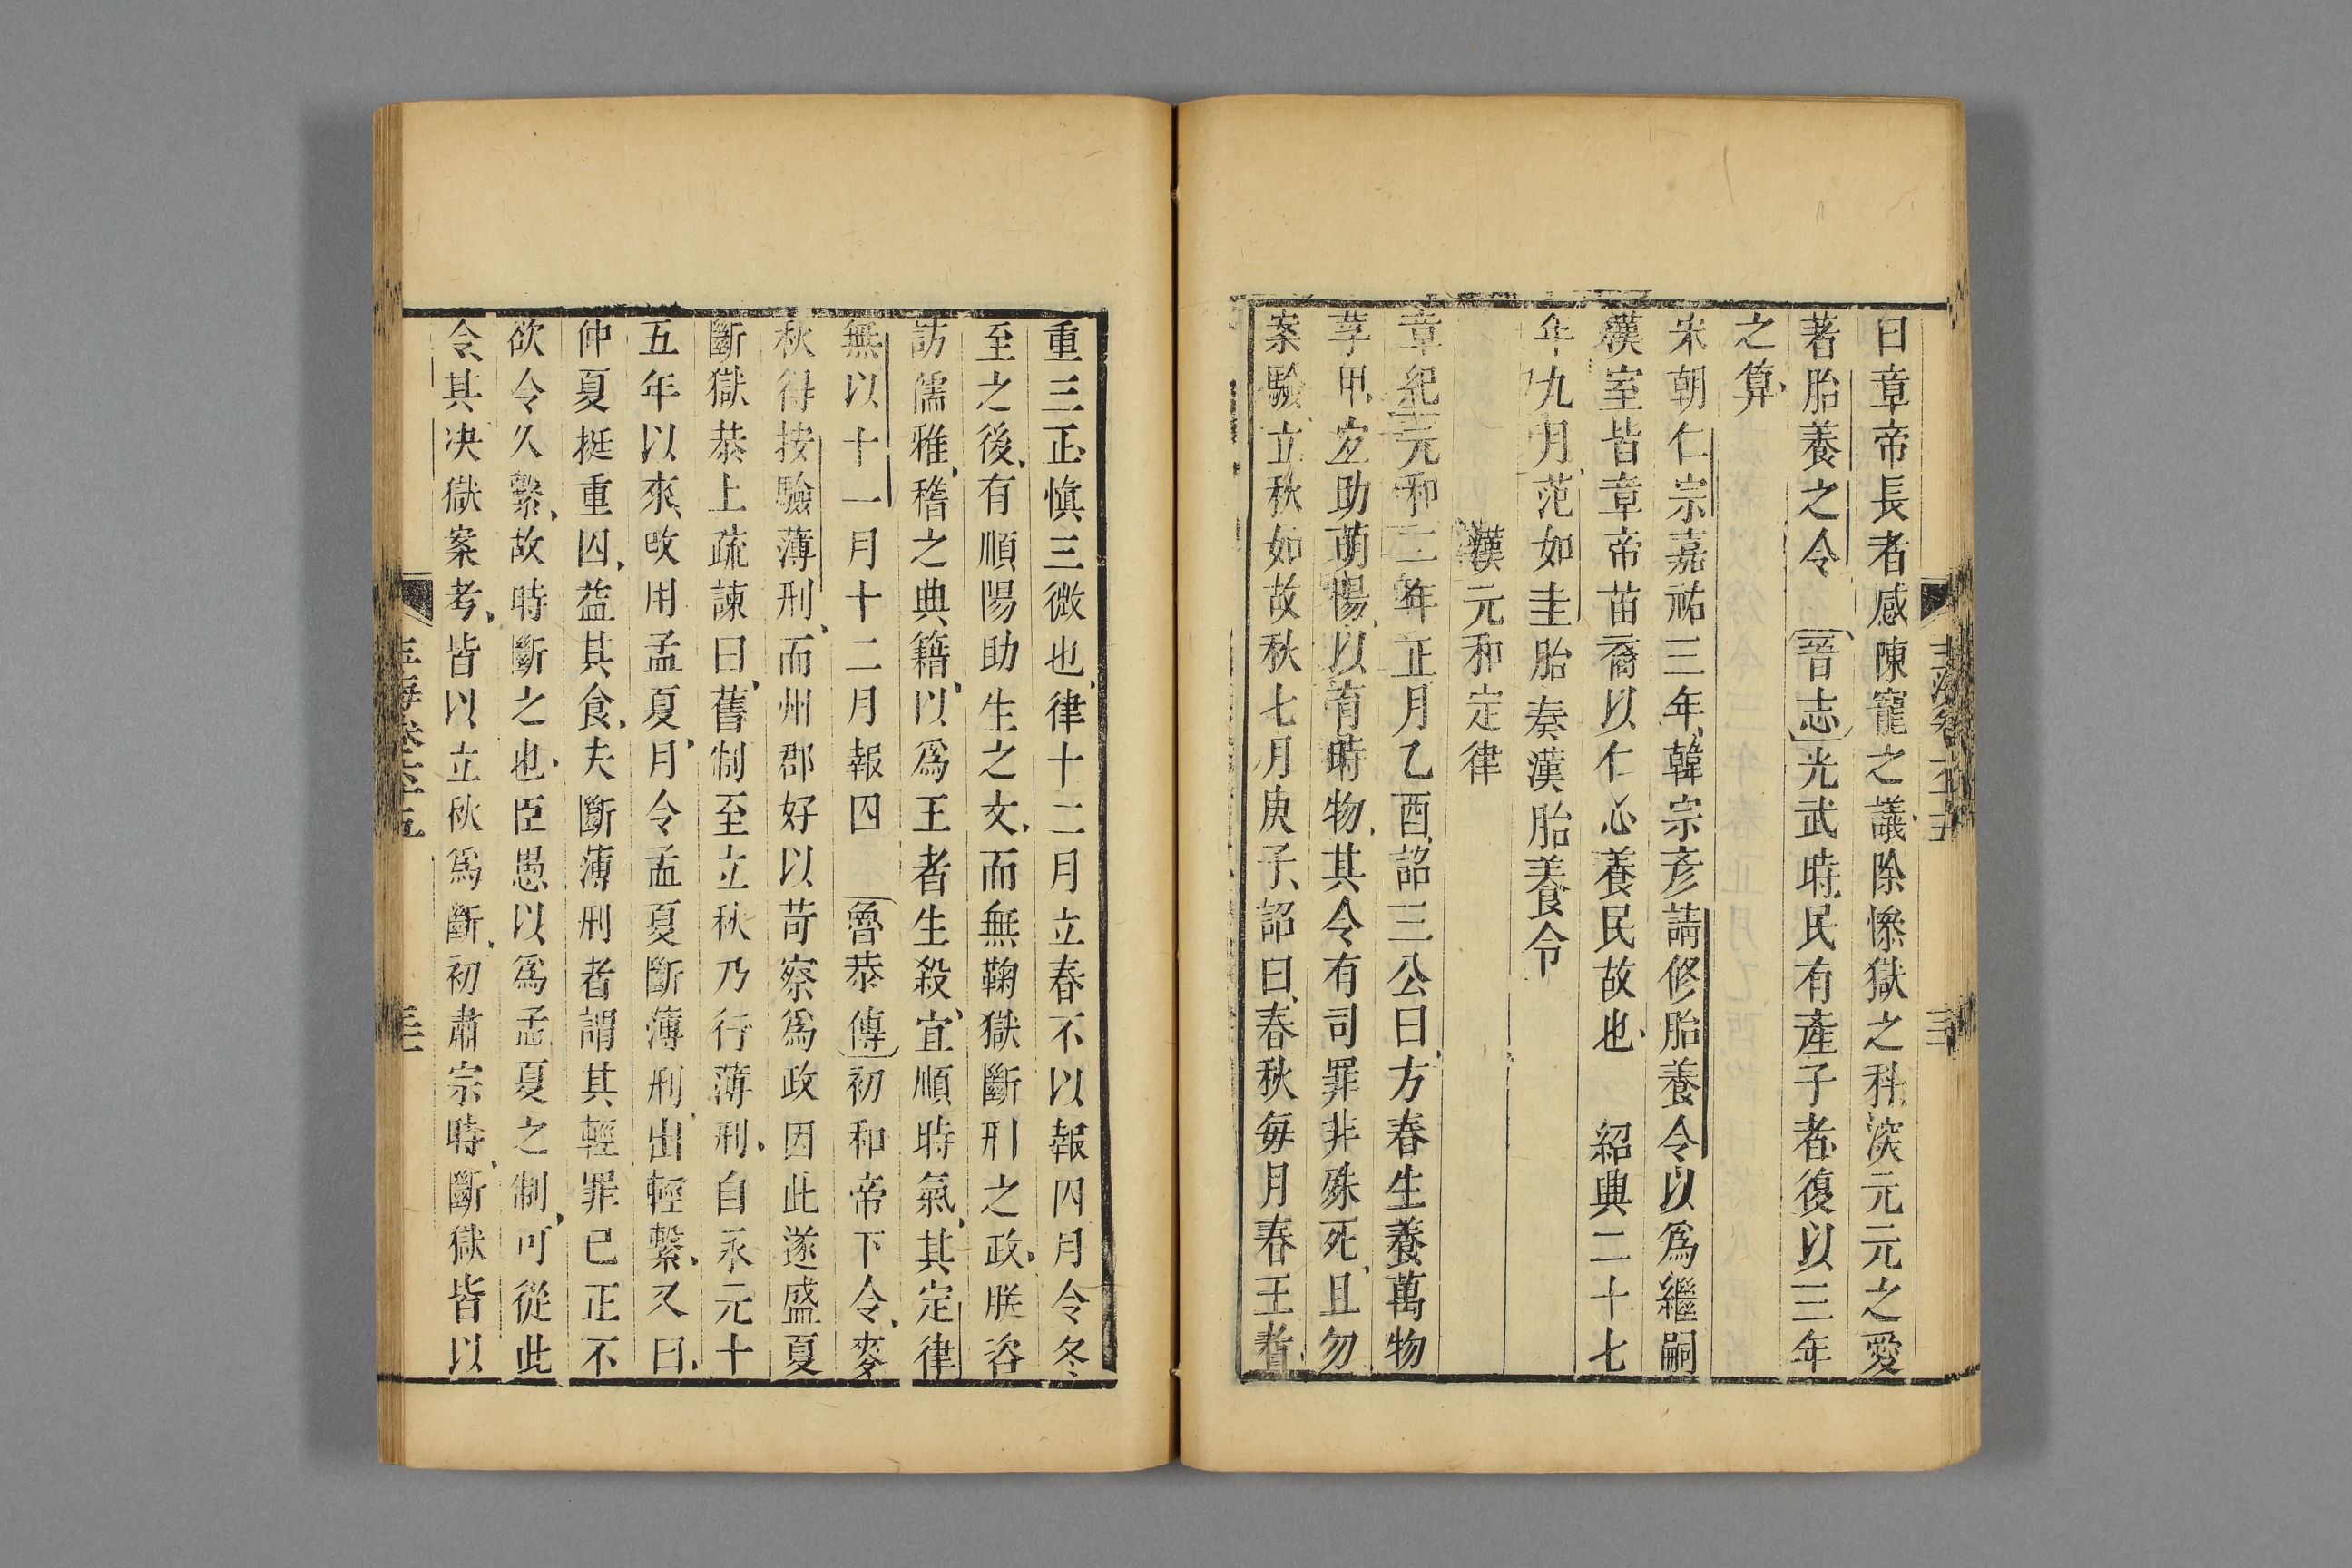 曰章帝長者感陳寵之議除慘獄之科深元元之愛
著胎養之令　晉志光武時民有產子者復以三年
之算
宋朝仁宗嘉祐三年韓宗彥請修胎養令以爲繼嗣
漢室皆章帝苗裔以仁心養民故也　紹興二十七
年九月范如圭胎奏漢胎養令
漢元和定律
章紀元和二年正月乙酉詔三公曰方春生養萬物
莩甲宜助萌陽以育時物其令有司罪非殊死且勿
案驗立秋如故秋七月庚子詔曰春秋每月春王者
重三正愼三微也律十二月立春不以報囚月令冬
至之後有順陽助生之文而無鞠獄斷刑之政朕咨
訪儒雅稽之典籍以爲王者生殺宜順時氣其定律
無以十一月十二月報囚　魯恭傳初和帝下令麥
秋得按驗薄刑而州郡好以苛察爲政因此遂盛夏
斷獄恭上疏諫曰舊制至立秋乃行薄刑自永元十
五年以來改用孟夏月令孟夏斷薄刑出輕繫又曰
仲夏挺重囚益其食夫斷薄刑者謂其輕罪已正不
欲令久繫故時斷之也臣愚以爲孟夏之制可從此
令其決獄案考皆以立秋爲斷初肅宗時斷獄皆以